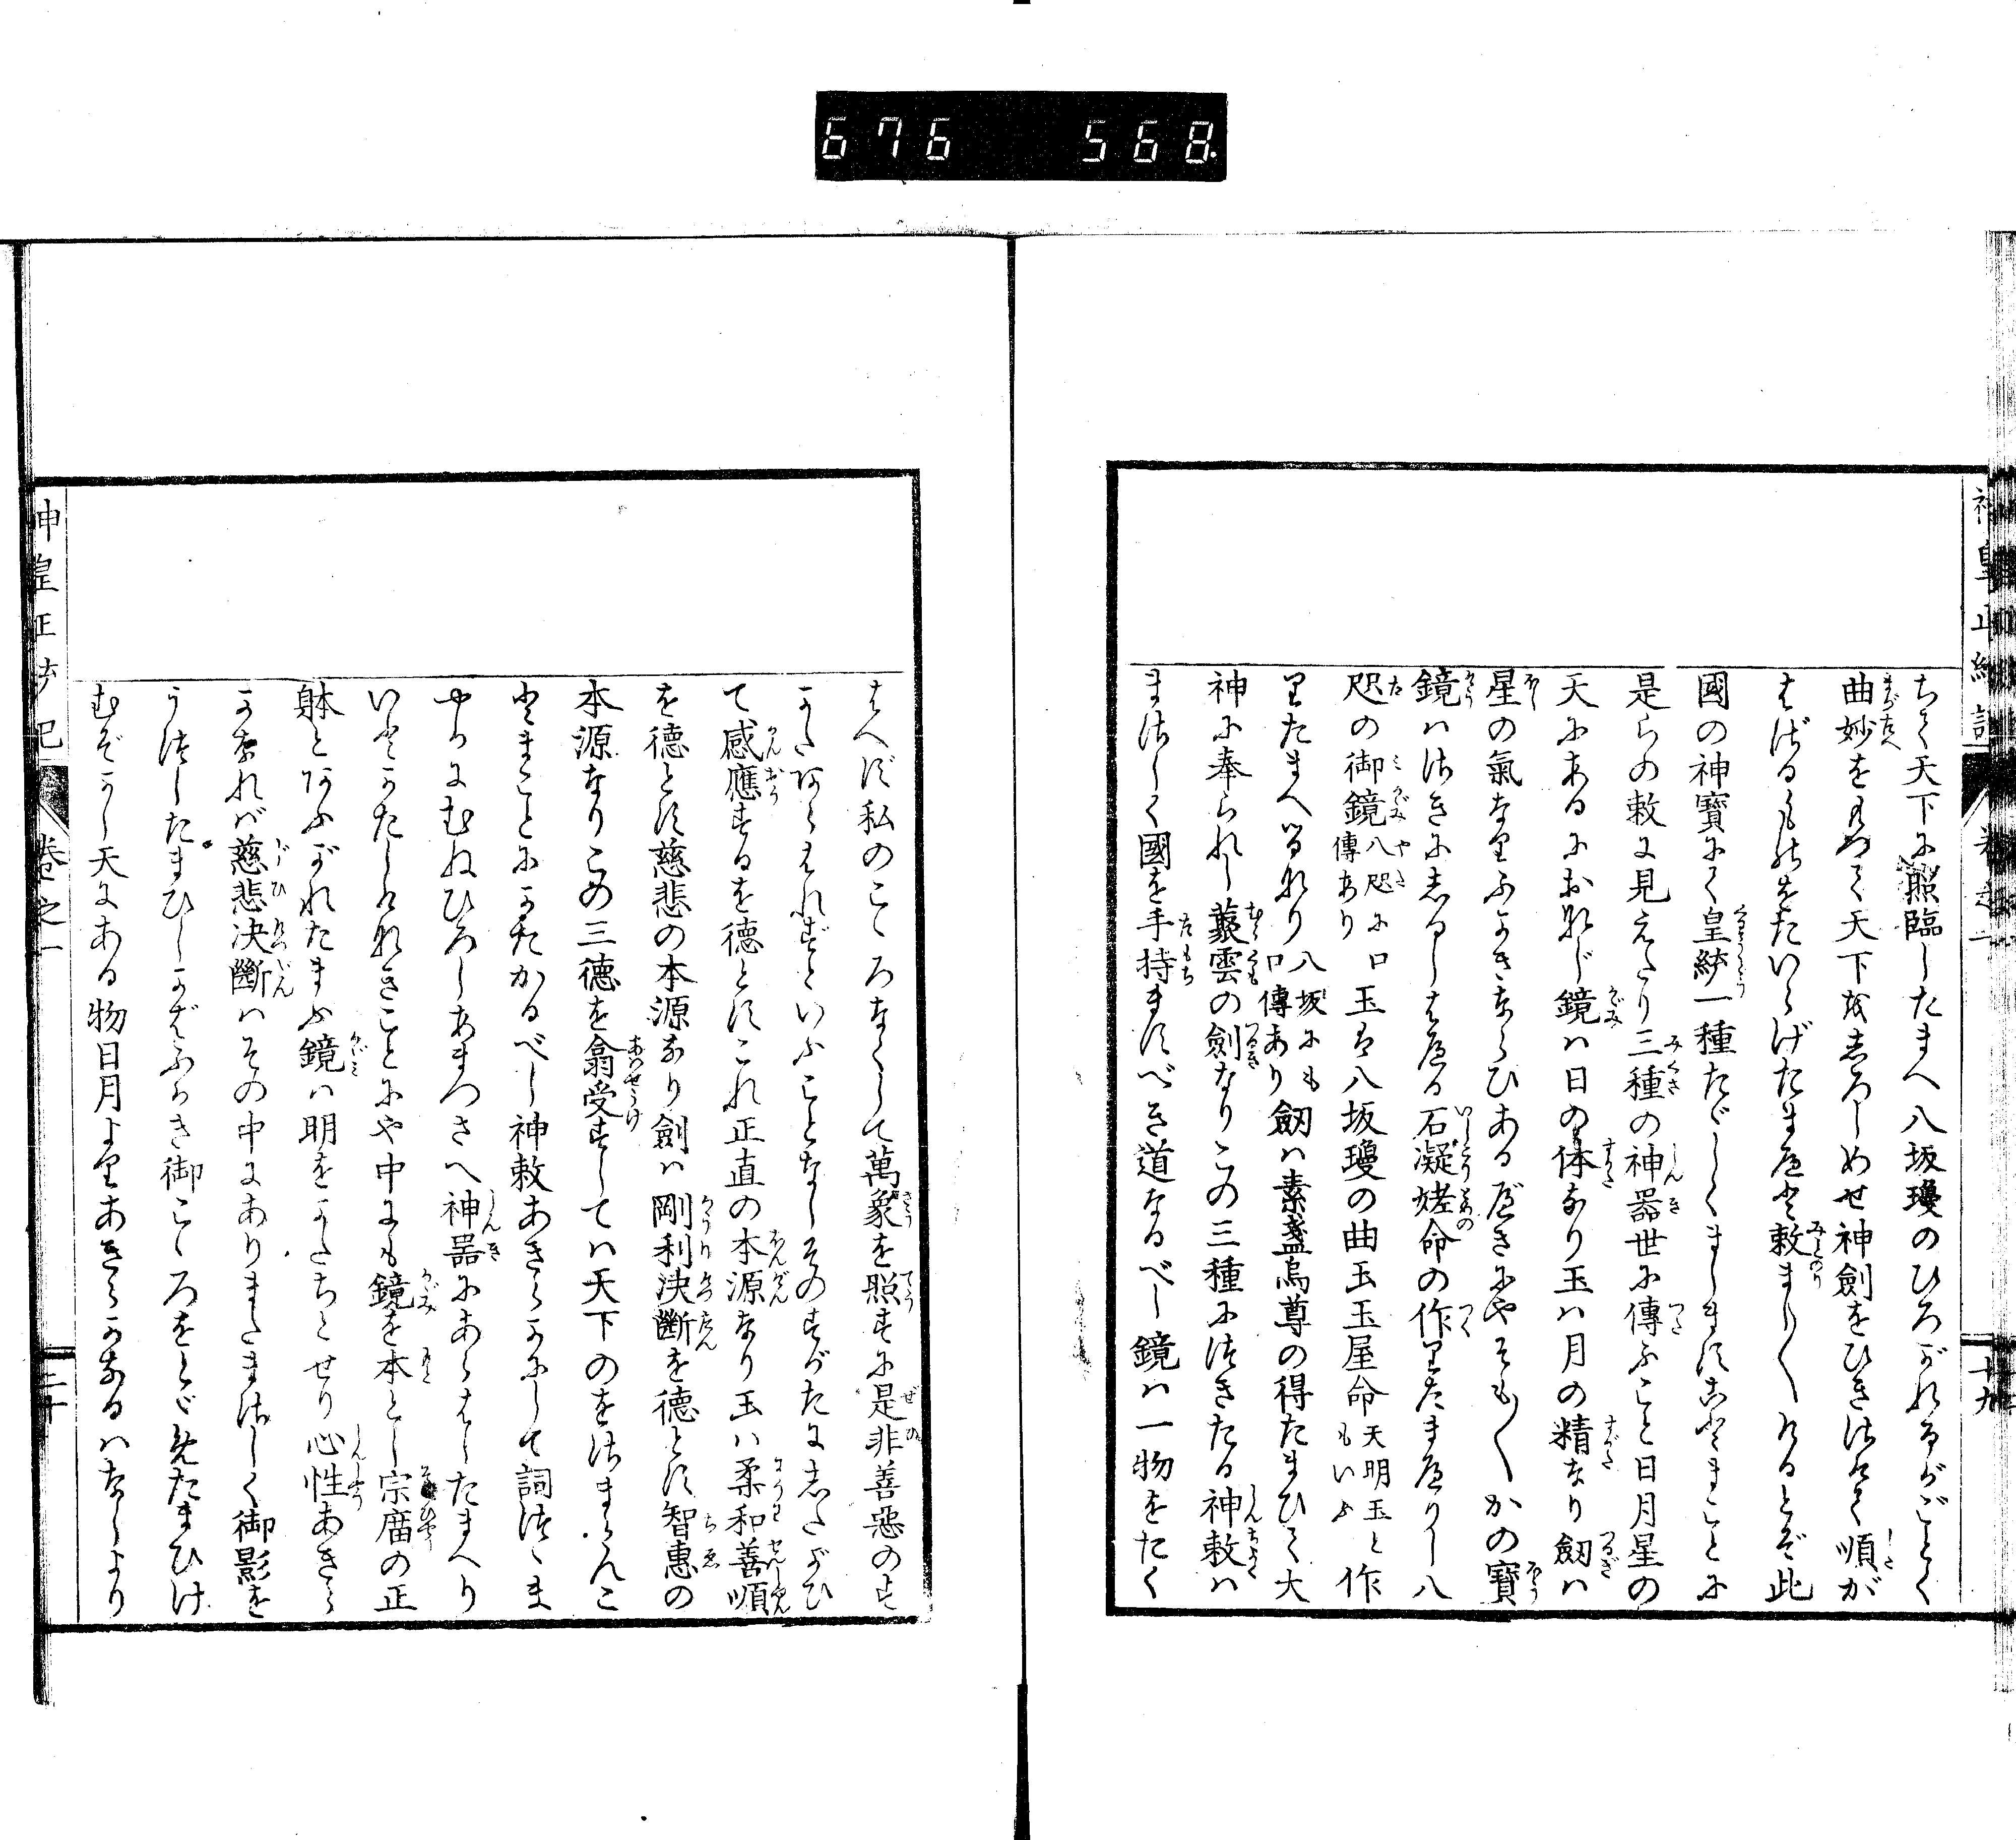 676 568.
神皇正統記 卷之一 十九
ちて天下に照臨したまへ八坂瓊のひろがれるがごとく
曲妙をもつて天下をしろしめせ神劍をひきさげて順が
はざるものをたいらげたまへと敕ましくけるとぞ此
國の神寶にて皇統一種たゞしくましますことまことに
是らの敕に見えたり三種の神器世に傳ふこと日月星の
天にあるにおなじ鏡は日の体なり玉は月の精なり劔は
星の氣なりふかきならひあるべきにやそも〱かの寶
鏡はさきにしるしはべる石凝姥命の作りたまへりし八
咫の御鏡八咫に口傳あり玉は八坂瓊の曲玉玉屋命天明玉ともいふ作
りたまへるなり八坂にも口傳あり劔は素盞烏尊の得たまひて大
神に奉られし藂雲の劍なりこの三種につきたる神敕は
まさしく國を手持ますべき道なるべし鏡は一物をたく
はへず私のこゝろなくして萬象を照すに是非善惡のす
がたあらはれずといふことなしそのすがたにしたがひ
て感應するを德とすこれ正直の本源なり玉は柔和善順
を德とす慈悲の本源なり劍は剛利決斷を德とす智惠の
本源なりこの三德を翕受ずしては天下のをさまらんこ
とまことにかたかるべし神敕あきらかにして詞つゞま
やかにむねひろしあまつさへ神器にあらはしたまへり
いとかたじけなきことにや中にも鏡を本とし宗庿の正
躰とあふがれたまふ鏡は明をかたちとせり心性あきら
かなれば慈悲決斷はその中にありまたまさしく御影を
うつしたまひしかばふかき御こゝろをとゞめたまひけ
むぞかし天にある物日月よりあきらかなるはなしより
神皇正統記 卷之一 二十